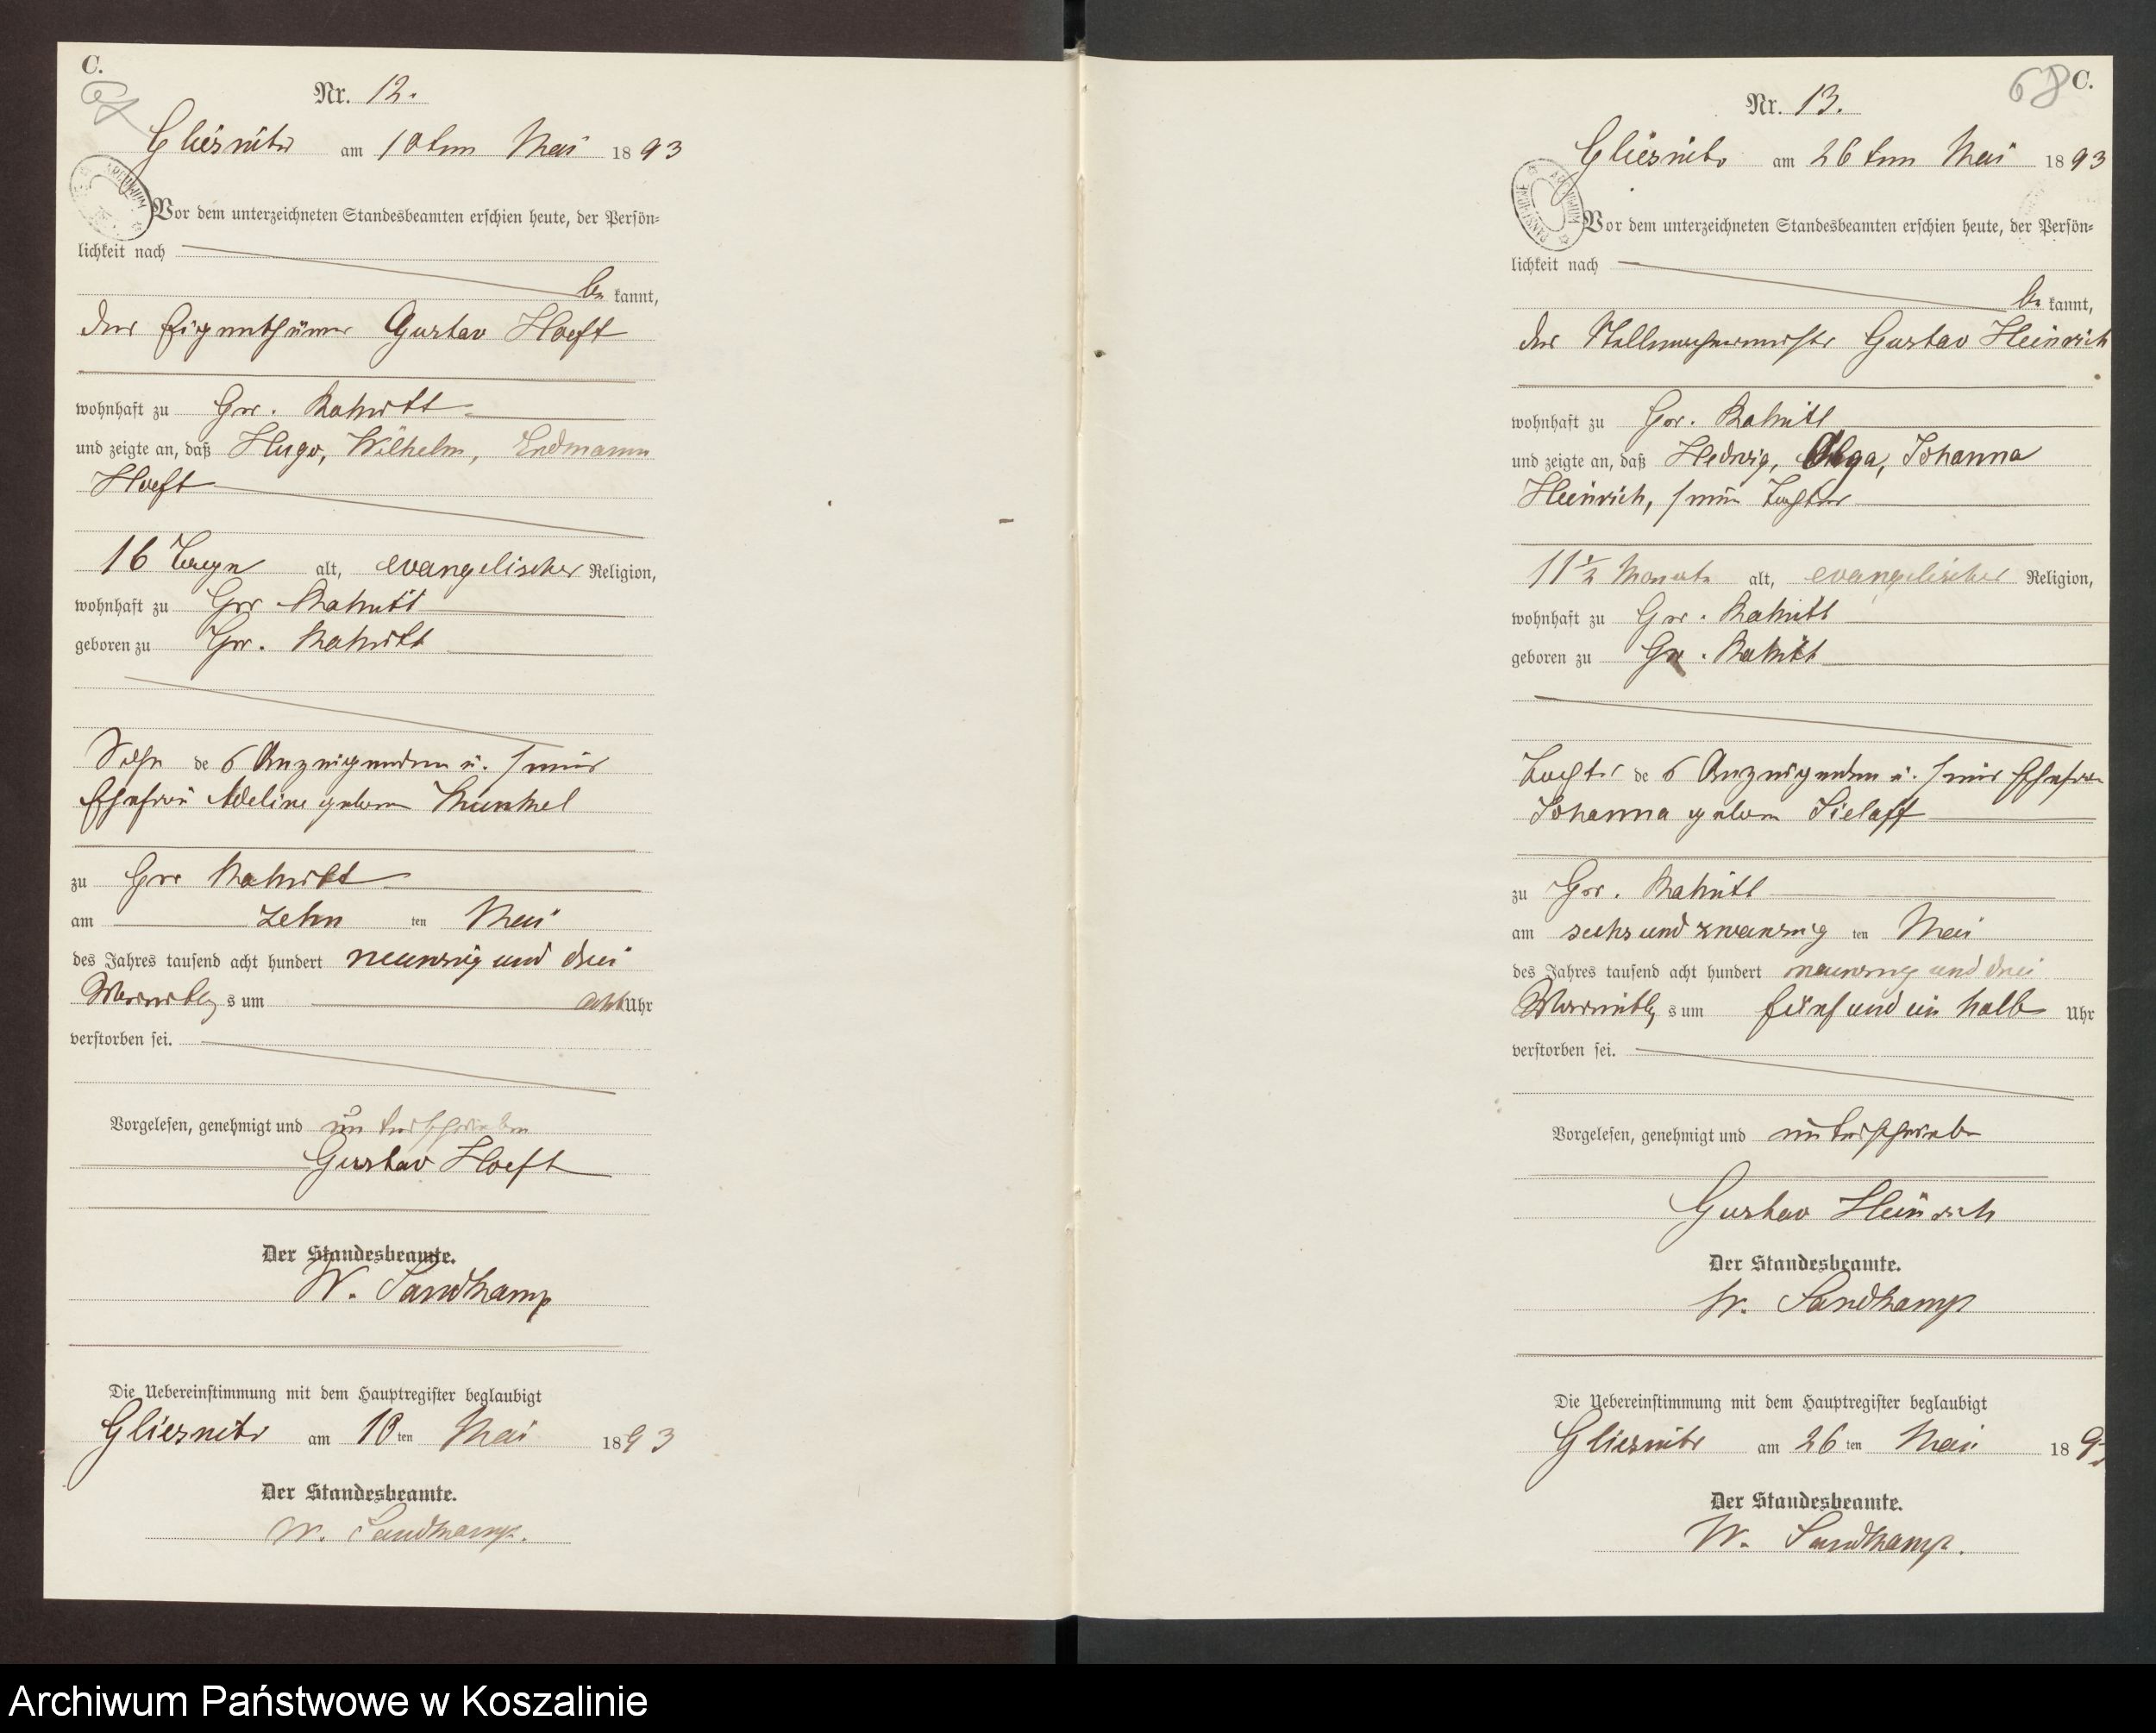 C.
67
Nr. 12.
Gliesnitz am 10ten Mai 1893
Vor dem unterzeichneten Standesbeamten erschien heute, der Persön-
lichkeit nach
be kannt,
der Eigenthümer Gustav Hoeft
wohnhaft zu Gr. Rakitt
und zeigte an, daß Hugo, Wilhelm, Erdmann
Hoeft
16 Tage alt, evangelischer Religion,
wohnhaft zu Gr Rakitt
geboren zu Gr. Rakitt
Sohn des Anzeigenden u. seiner
Ehefrau Adeline geborne Kunkel
zu Gr Rakitt
am zehn ten Mai
des Jahres tausend acht hundert neunzig und drei
Vormittags um acht Uhr
verstorben sei.
Vorgelesen, genehmigt und unterschrieben
Gustav Hoeft
Der Standesbeamte.
W. Sandkamp
Die Uebereinstimmung mit dem Hauptregister beglaubigt
Gliesnitz am 10ten Mai 1893
Der Standesbeamte.
W. Sandkamp.
68 C.
Nr. 13.
Gliesnitz am 26ten Mai 1893
Vor dem unterzeichneten Standesbeamten erschien heute, der Persön-
lichkeit nach
be kannt,
der Stellmachermeister Gustav Heinrich
wohnhaft zu Gr. Rakitt
und zeigte an, daß Hedwig, Olga, Johanna
Heinrich, seine Tochter
11½ Monate alt, evangelischer Religion,
wohnhaft zu Gr. Rakitt
geboren zu Gr. Rakitt
Tochter des Anzeigenden u. seiner Ehefrau
Johanna geborne Sielaff
zu Gr. Rakitt
am sechs und zwanzig ten Mai
des Jahres tausend acht hundert neunzig und drei
Vormittags um fünf und ein halb Uhr
verstorben sei.
Vorgelesen, genehmigt und unterschrieben
Gustav Heinrich
Der Standesbeamte.
W. Sandkamp
Die Uebereinstimmung mit dem Hauptregister beglaubigt
Gliesnitz am 26ten Mai 1893
Der Standesbeamte.
W. Sandkamp.
Archiwum Państwowe w Koszalinie